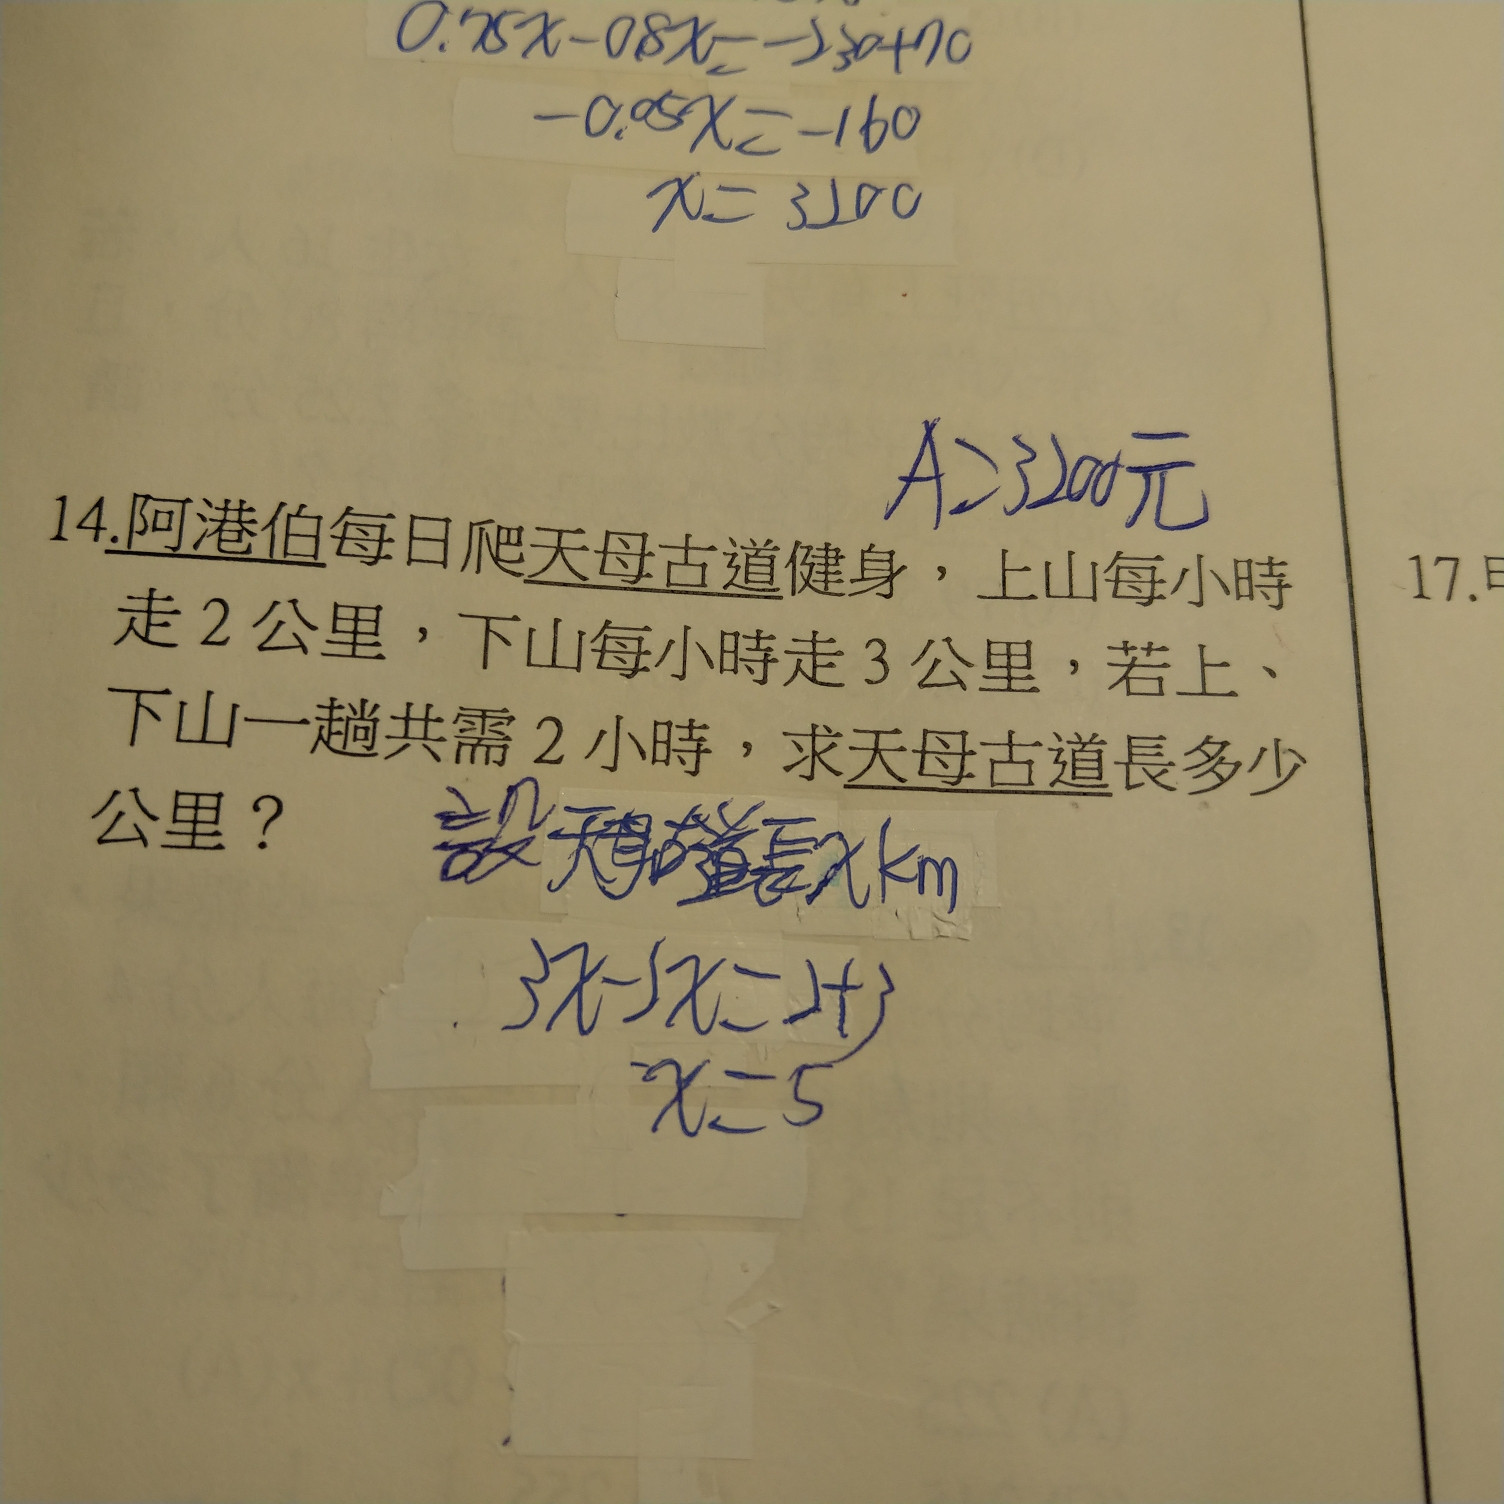 0.75x-0.8x=-230+70
-0.05x=-160
x=3200
A=3200元
14.阿港伯每日爬天母古道健身，上山每小時
走2公里，下山每小時走3公里，若上、
下山一趟共需2小時，求天母古道長多少
公里？
設天母古道長xkm
3x-2x=2+3
x=5
17.甲